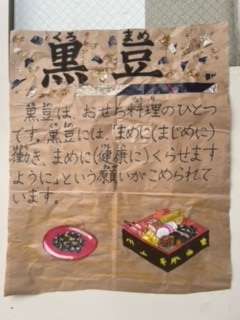 くろ まめ
黒豆
黒豆は、おせち料理のひとつ
です。黒豆には、「まめに(まじめに)
働き、まめに(健康に)くらせます
ように」という願いがこめられて
います。